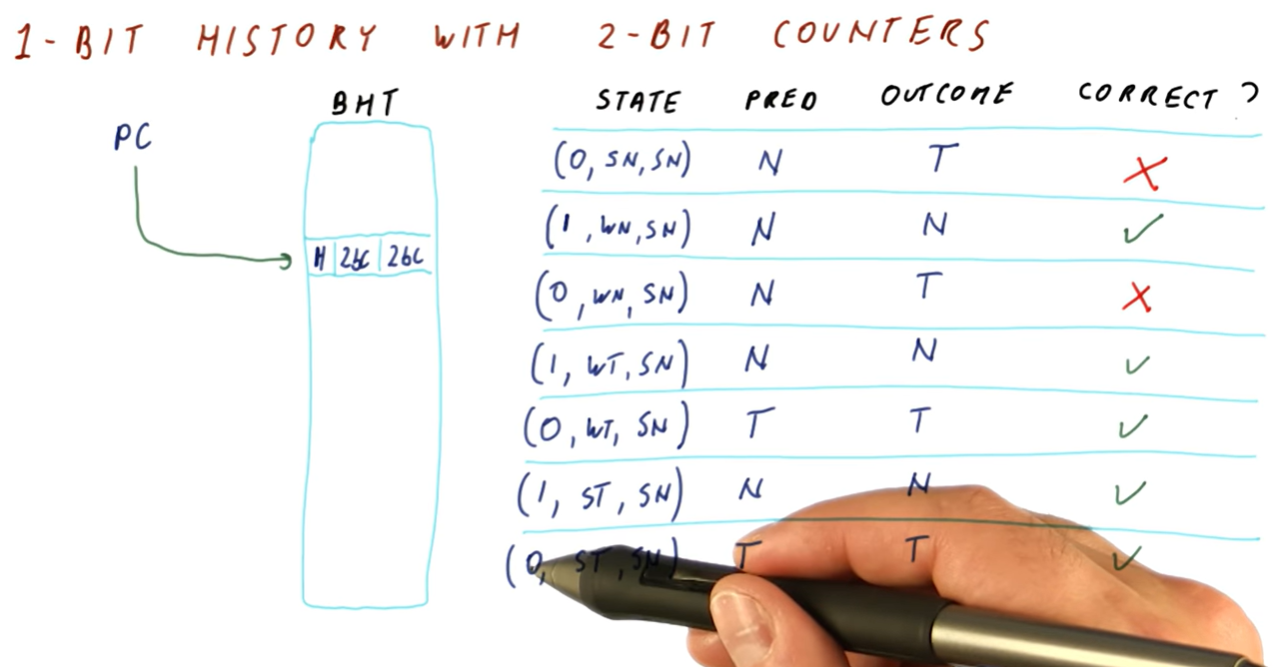 1-BIT HISTORY WITH 2-BIT COUNTERS
BHT
PC
H 2bC 2bC
STATE PRED OUTCOME CORRECT ?
(0, SN, SN) N T ✗
(1, WN, SN) N N ✓
(0, WN, SN) N T ✗
(1, WT, SN) N N ✓
(0, WT, SN) T T ✓
(1, ST, SN) N N ✓
(0, ST, SN) T T ✓